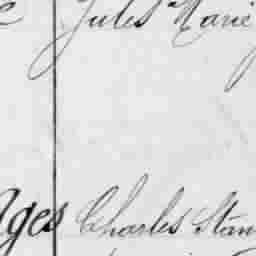 Jules Marie
ges Charles Stan